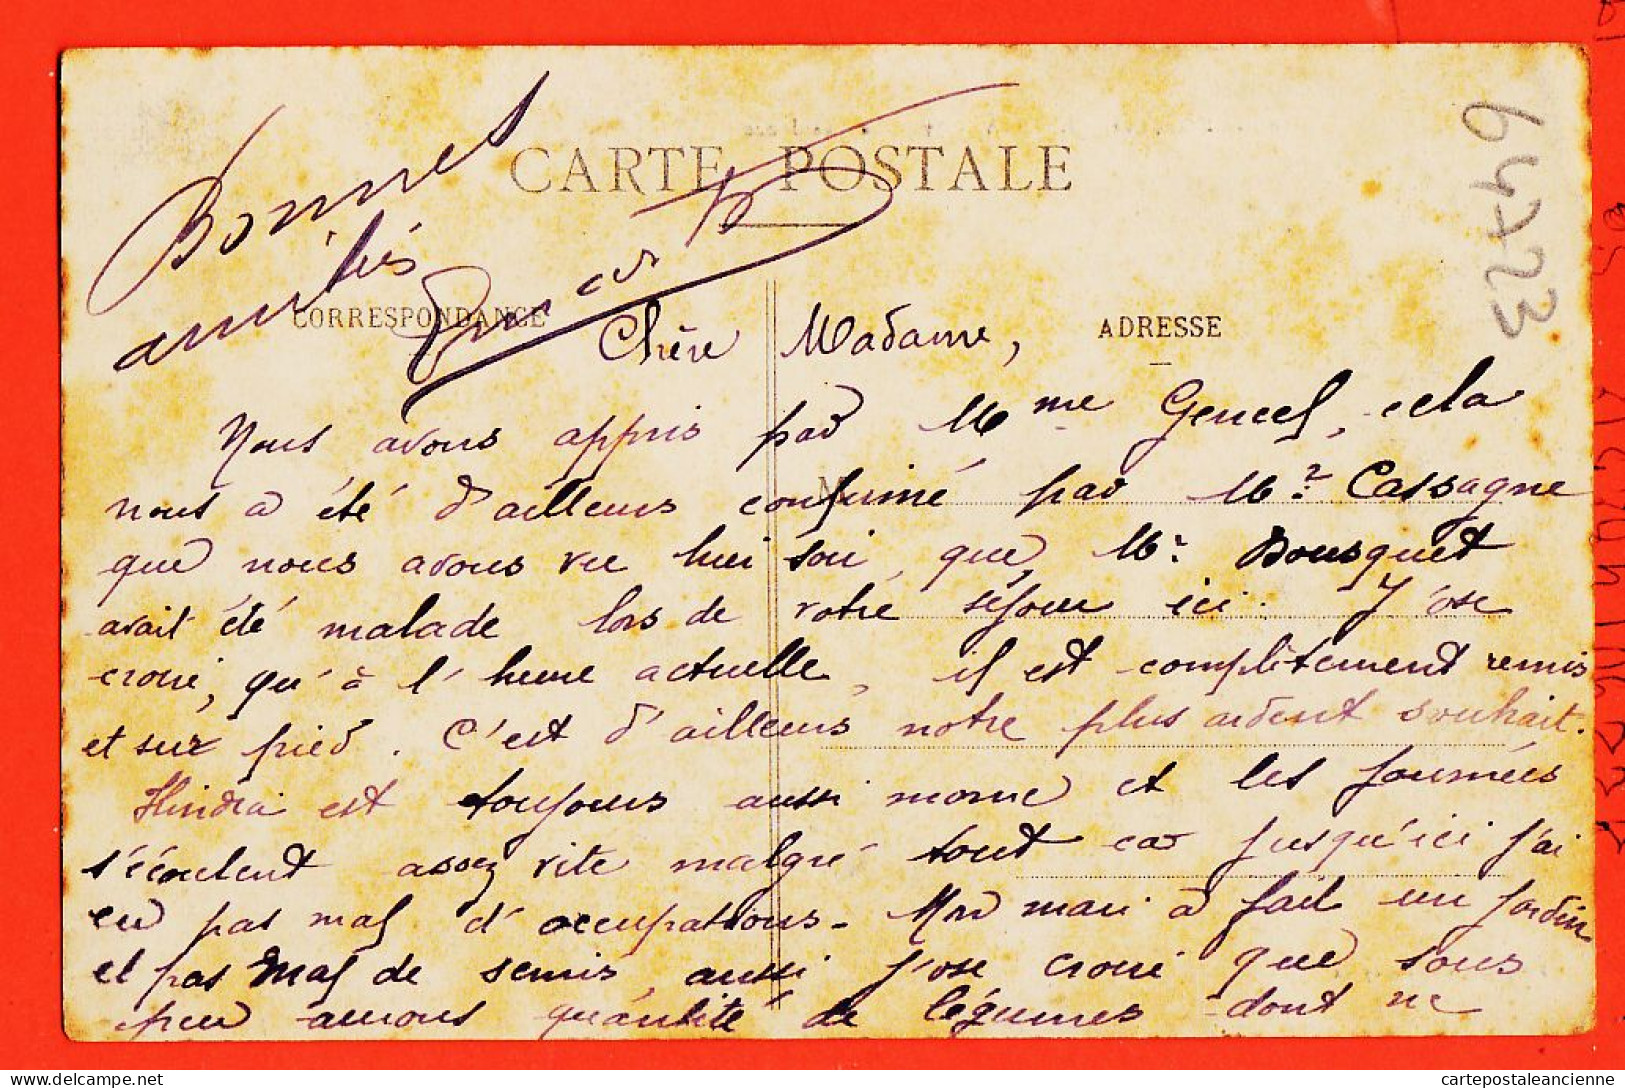 Bonnes
amitiés
CARTE POSTALE
64723
CORRESPONDANCE
ADRESSE
Chère Madame,
Nous avons appris par Mme Gencel, cela
nous a été d'ailleurs confirmé par Mr. Cassagne
que nous avons vu hier soir, que Mr. Bousquet
avait été malade lors de votre séjour ici. J'ose
croire, qu'à l'heure actuelle, il est complètement remis
et sur pied. C'est d'ailleurs notre plus ardent souhait.
est toujours aussi morne et les journées
s'écoulent assez vite malgré tout car jusqu'ici j'ai
eu pas mal d'occupations. Mon mari a fait un jardin
et pas mal de semis, aussi j'ose croire que sous
peu aurons quantité de légumes dont ne
cartepostaleancienne.com